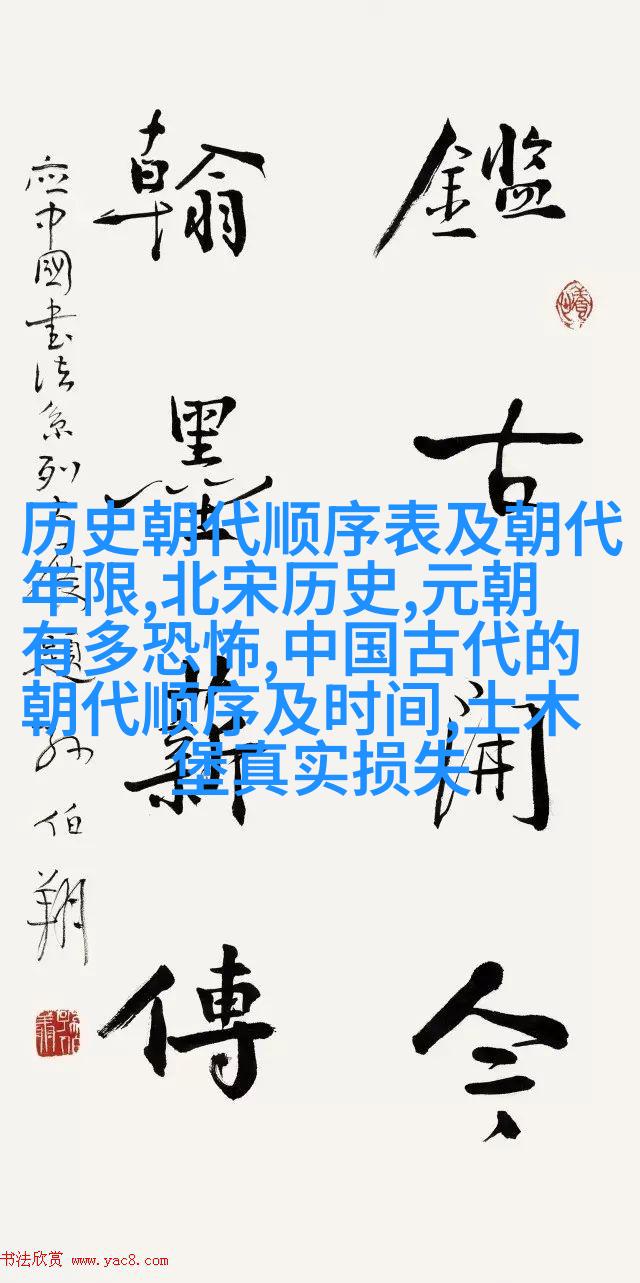 鑑古開今
翰墨薪傳
應中國書法系列大展題 孙伯翔
历史朝代顺序表及朝代
年限,北宋历史,元朝
有多恐怖,中国古代的
朝代顺序及时间,土木
堡真实损失
书法欣赏 www.yac8.com